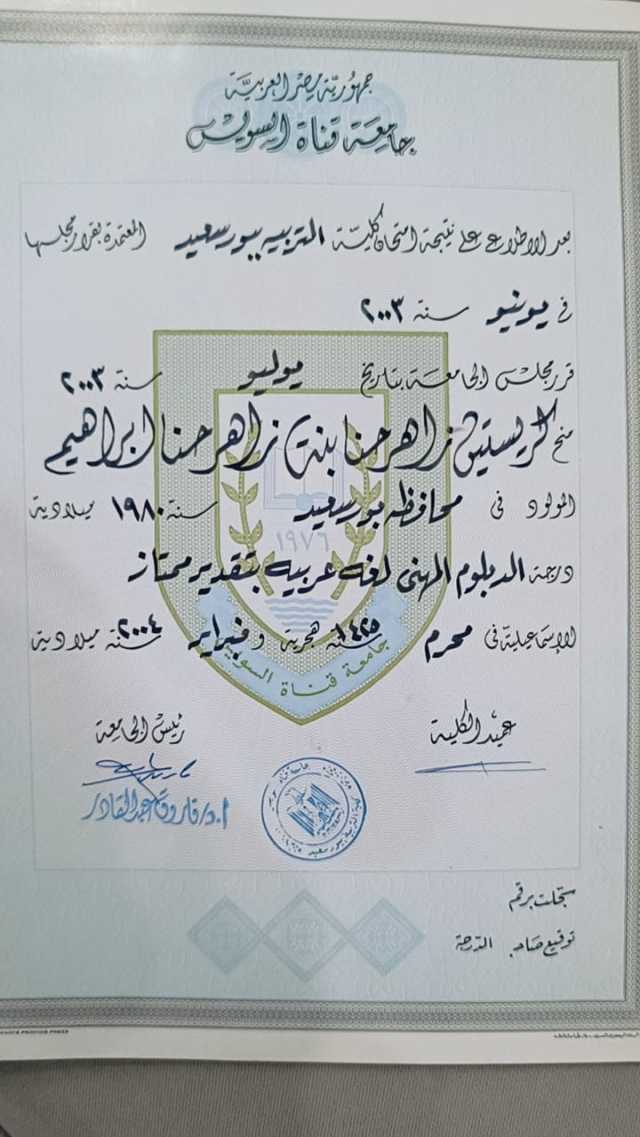 جمهورية مصر العربية
جامعة قناة السويس
بعد الاطلاع على نتيجة امتحان كلية التربيه ببورسعيد المعتمدة بقرار مجلسها
في يونيو سنة ٢٠٠٣
قرر مجلس الجامعة بتاريخ يوليو سنة ٢٠٠٣
منح كريستين زاهر حنا بنة زاهر حنا ابراهيم
المولود في محافظه بورسعيد سنة ١٩٨٠ ميلادية
١٩٧٦
درجة الدبلوم المهنى لغه عربيه بتقدير ممتاز
الإسماعيلية في محرم سنة ١٤٢٥ هجرية و فبراير سنة ٢٠٠٤ ميلادية
جامعة قناة السويس
عميد الكلية رئيس الجامعة
أ.د/ فاروق عبد القادر
سجلت برقم
توقيع صاحب الدرجة